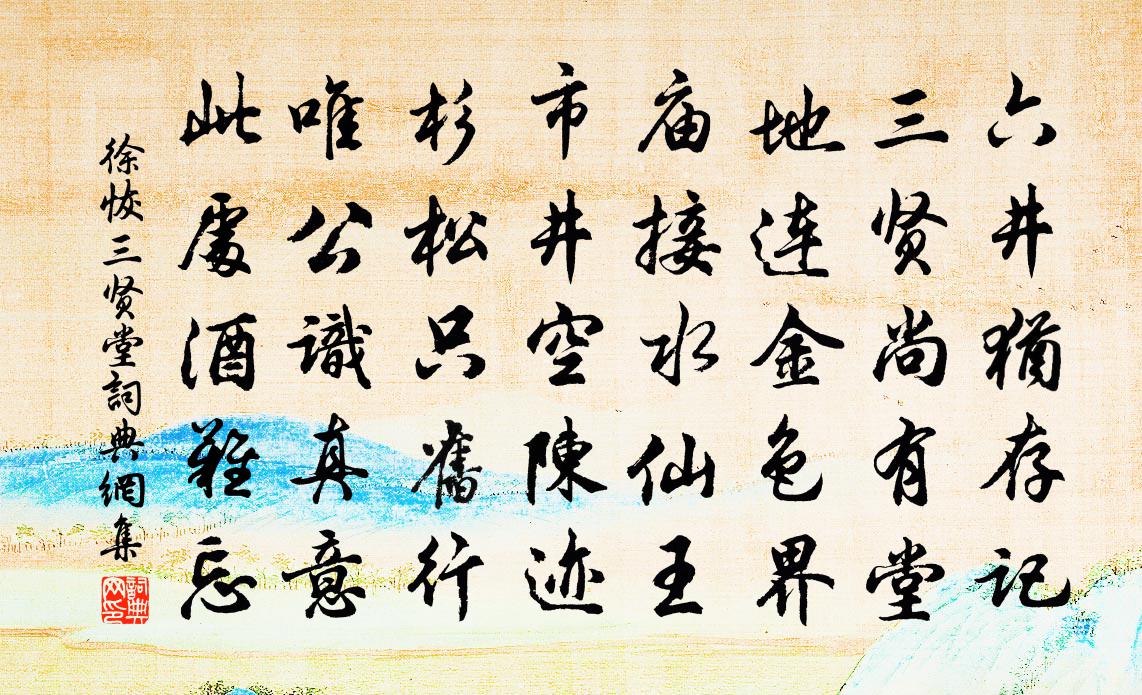 六井犹存记
三贤尚有堂
地连金色界
庙接水仙王
市井空陈迹
杉松只舊行
唯公識真意
此處酒難忘
徐恢三贤堂詞典網集
詞典网印